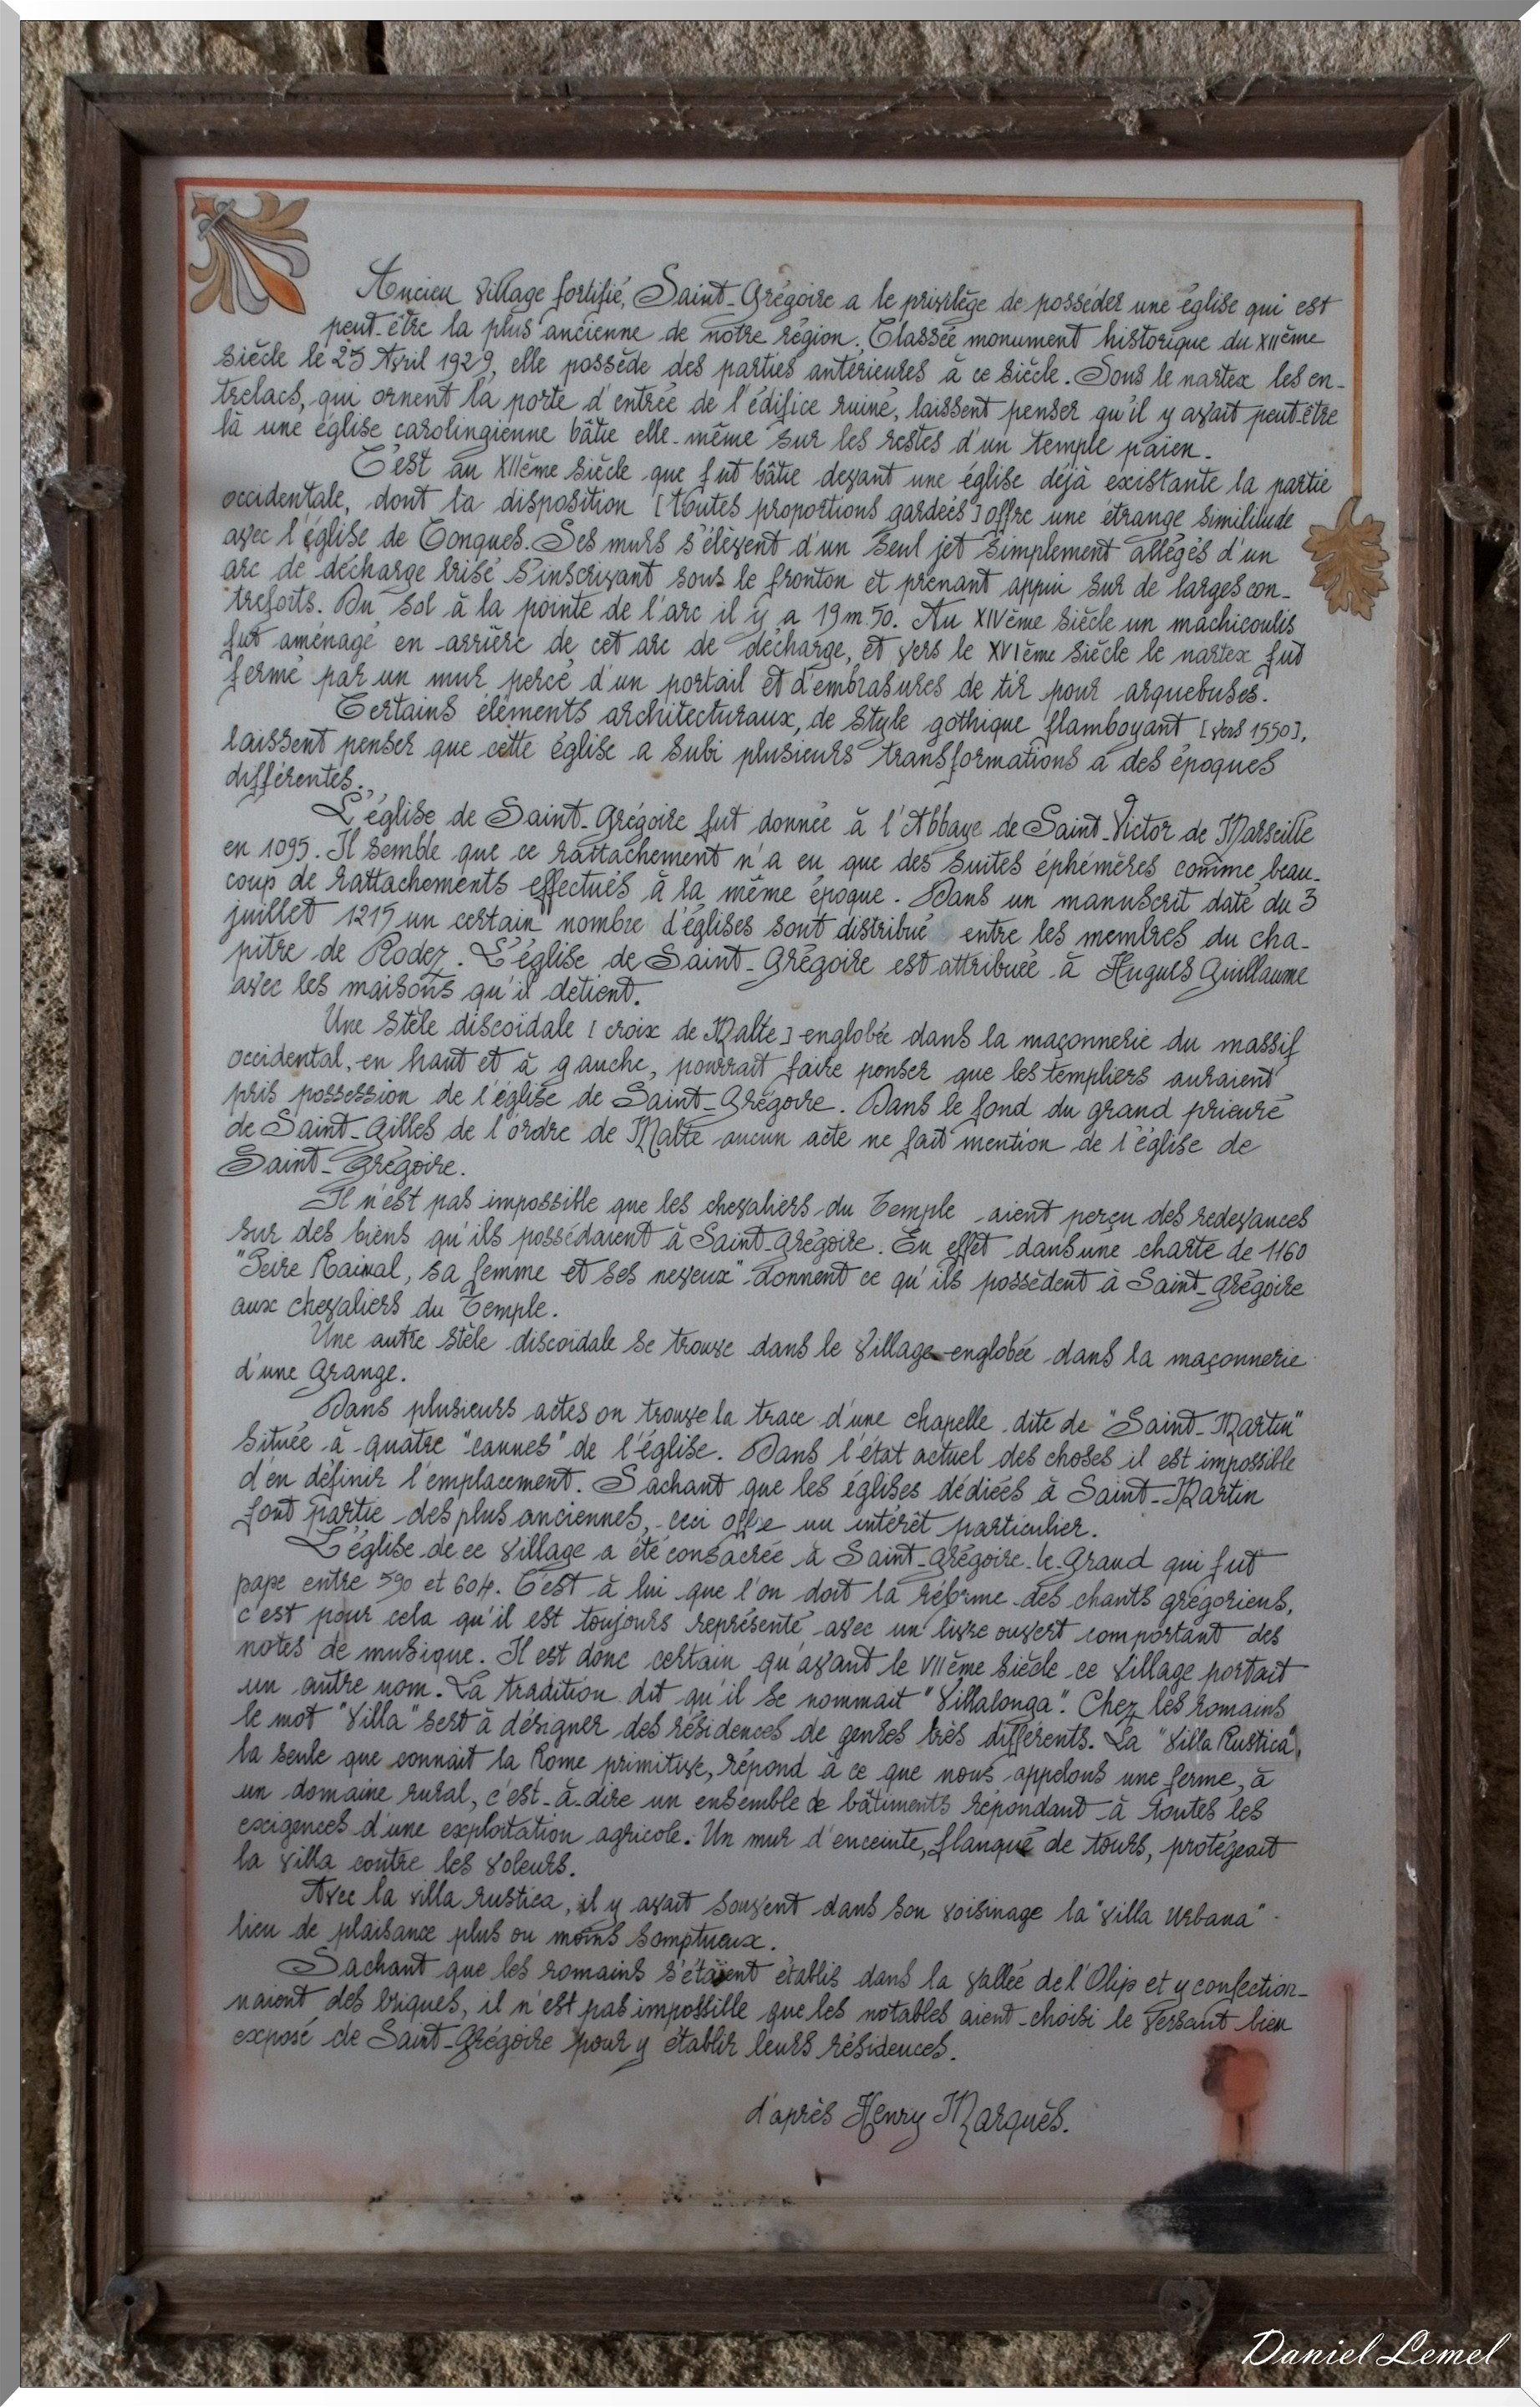 Ancien Village fortifié, Saint-Grégoire a le privilège de posséder une église qui est
peut-être la plus ancienne de notre région. Classée monument historique du XIIème
siècle le 25 Avril 1929, elle possède des parties antérieures à ce siècle. Sous le nartex les en-
trelacs, qui ornent la porte d'entrée de l'édifice ruiné, laissent penser qu'il y avait peut-être
là une église carolingienne bâtie elle-même sur les restes d'un temple païen.
C'est au XIIème siècle que fut bâtie devant une église déjà existante la partie
occidentale, dont la disposition [toutes proportions gardées] offre une étrange similitude
avec l'église de Conques. Ses murs s'élèvent d'un seul jet simplement allégés d'un
arc de décharge brisé s'inscrivant sous le fronton et prenant appui sur de larges con-
treforts. Du sol à la pointe de l'arc il y a 19m.50. Au XIVème siècle un machicoulis
fut aménagé en arrière de cet arc de décharge, et vers le XVIème siècle le nartex fut
fermé par un mur percé d'un portail et d'embrasures de tir pour arquebuses.
Certains éléments architecturaux, de style gothique flamboyant [vers 1550],
laissent penser que cette église a subi plusieurs transformations à des époques
différentes.
L'église de Saint-Grégoire fut donnée à l'Abbaye de Saint-Victor de Marseille
en 1095. Il semble que ce rattachement n'a eu que des suites éphémères comme beau-
coup de rattachements effectués à la même époque. Dans un manuscrit daté du 3
juillet 1215 un certain nombre d'églises sont distribué entre les membres du cha-
pitre de Rodez. L'église de Saint-Grégoire est attribuée à Hugues Guillaume
avec les maisons qu'il détient.
Une stèle discoïdale [croix de Malte] englobée dans la maçonnerie du massif
occidental, en haut et à gauche, pourrait faire penser que les templiers auraient
pris possession de l'église de Saint-Grégoire. Dans le fond du grand prieuré
de Saint-Gilles de l'ordre de Malte aucun acte ne fait mention de l'église de
Saint-Grégoire.
Il n'est pas impossible que les chevaliers du Temple aient perçu des redevances
sur des biens qu'ils possédaient à Saint-Grégoire. En effet dans une charte de 1160
"Peire Rainal, sa femme et ses neveux" donnent ce qu'ils possèdent à Saint-Grégoire
aux chevaliers du Temple.
Une autre stèle discoïdale se trouve dans le Village englobée dans la maçonnerie
d'une Grange.
Dans plusieurs actes on trouve la trace d'une chapelle dite de "Saint-Martin"
située à quatre "cannes" de l'église. Dans l'état actuel des choses il est impossible
d'en définir l'emplacement. Sachant que les églises dédiées à Saint-Martin
font partie des plus anciennes, ceci offre un intérêt particulier.
L'église de ce Village a été consacrée à Saint-Grégoire-le-Grand qui fut
pape entre 590 et 604. C'est à lui que l'on doit la réforme des chants grégoriens,
c'est pour cela qu'il est toujours représenté avec un livre ouvert comportant des
notes de musique. Il est donc certain qu'avant le VIIème siècle ce Village portait
un autre nom. La tradition dit qu'il se nommait "Villalonga". Chez les romains
le mot "Villa" sert à désigner des résidences de genres très différents. La "Villa Rustica",
la seule que connait la Rome primitive, répond à ce que nous appelons une ferme, à
un domaine rural, c'est-à-dire un ensemble de bâtiments répondant à toutes les
exigences d'une exploitation agricole. Un mur d'enceinte, flanqué de tours, protégeait
la villa contre les voleurs.
Avec la villa rustica, il y avait souvent dans son voisinage la "Villa Urbana"
lieu de plaisance plus ou moins somptueux.
Sachant que les romains s'étaient établis dans la vallée de l'Olip et y confection-
naient des briques, il n'est pas impossible que les notables aient choisi le versant bien
exposé de Saint-Grégoire pour y établir leurs résidences.
d'après Henry Marquès.
Daniel Lemel